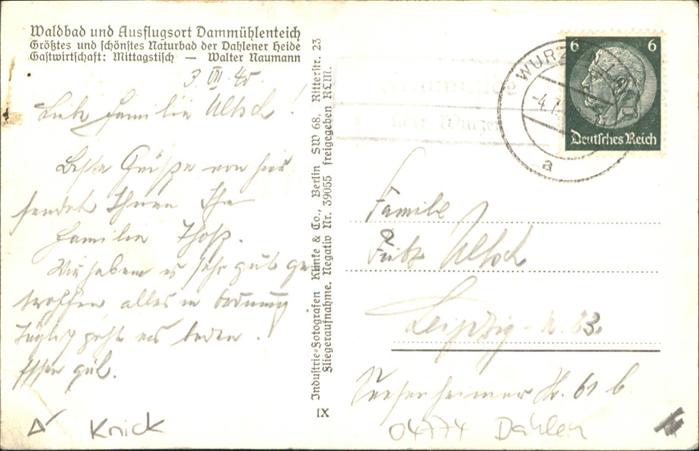 Waldbad und Ausflugsort Dammühlenteich
Größtes und schönstes Naturbad der Dahlener Heide
Gastwirtschaft: Mittagstisch — Walter Naumann
3. VII. 40
Liebe Familie Altsch!
Beste Grüße von hier
sendet Ihnen Ihre
Familie
Wir haben es sehr gut ge
troffen alles in Ordnung
Täglich geht es baden.
Essen gut.
Industrie-Fotografen Klinke & Co., Berlin SW 68, Ritterstr. 23
Fliegeraufnahme. Negativ Nr. 39055 freigegeben RLM.
IX
über Wurzen
WURZEN
-4.7.
a
6 6
Deutsches Reich
Familie
Fritz Altsch
Leipzig - N. 23.
Str. 61 b
Knick
04774 Dahlen